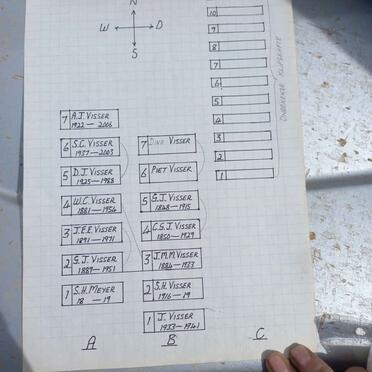 N
W D
S
10
9
8
7
6
5
4
3
2
1
7 A.J. VISSER
1922 — 2006
6 S.C. VISSER
1937 — 2003
5 D.J. VISSER
1925 — 1988
4 W.C. VISSER
1881 — 1954
3 J.E.E. VISSER
1891 — 1971
2 G.J. VISSER
1889 — 1951
1 S.H. MEYER
18 — 19
A
7 DINA VISSER
6 PIET VISSER
5 G.J. VISSER
1848 — 1915
4 C.S.J. VISSER
1850 — 1929
3 J.M.M. VISSER
1884 — 1933
2 S.H. VISSER
1916 — 19
1 J. VISSER
1933 — 1941
B
C